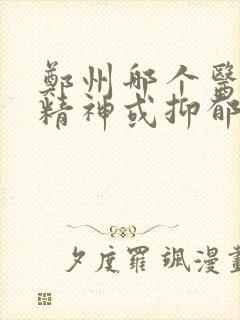 鄭州哪个醫
精神或抑郁
夕度羅颯漫畫